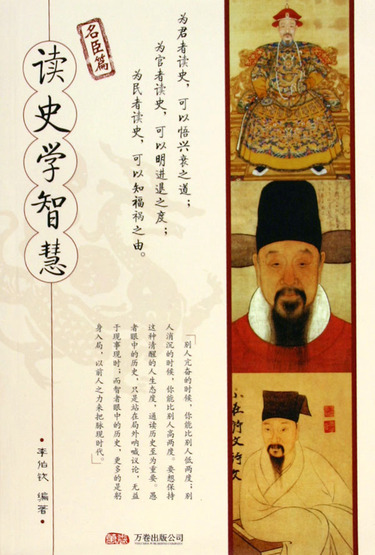 读史学智慧
名臣篇
为君者读史，可以悟兴衰之道；
为官者读史，可以明进退之度；
为民者读史，可以知福祸之由。
「别人亢奋的时候，你能比别人低两度；别
人消沉的时候，你能比别人高两度。要想保持
这种清醒的人生态度，通读历史至为重要。愚
者眼中的历史，只是站在局外呐喊议论，无益
于现事现时；而智者眼中的历史，更多的是躬
身入局，以前人之力来把脉现时代。」
·李伯钦 编著·
万卷出版公司